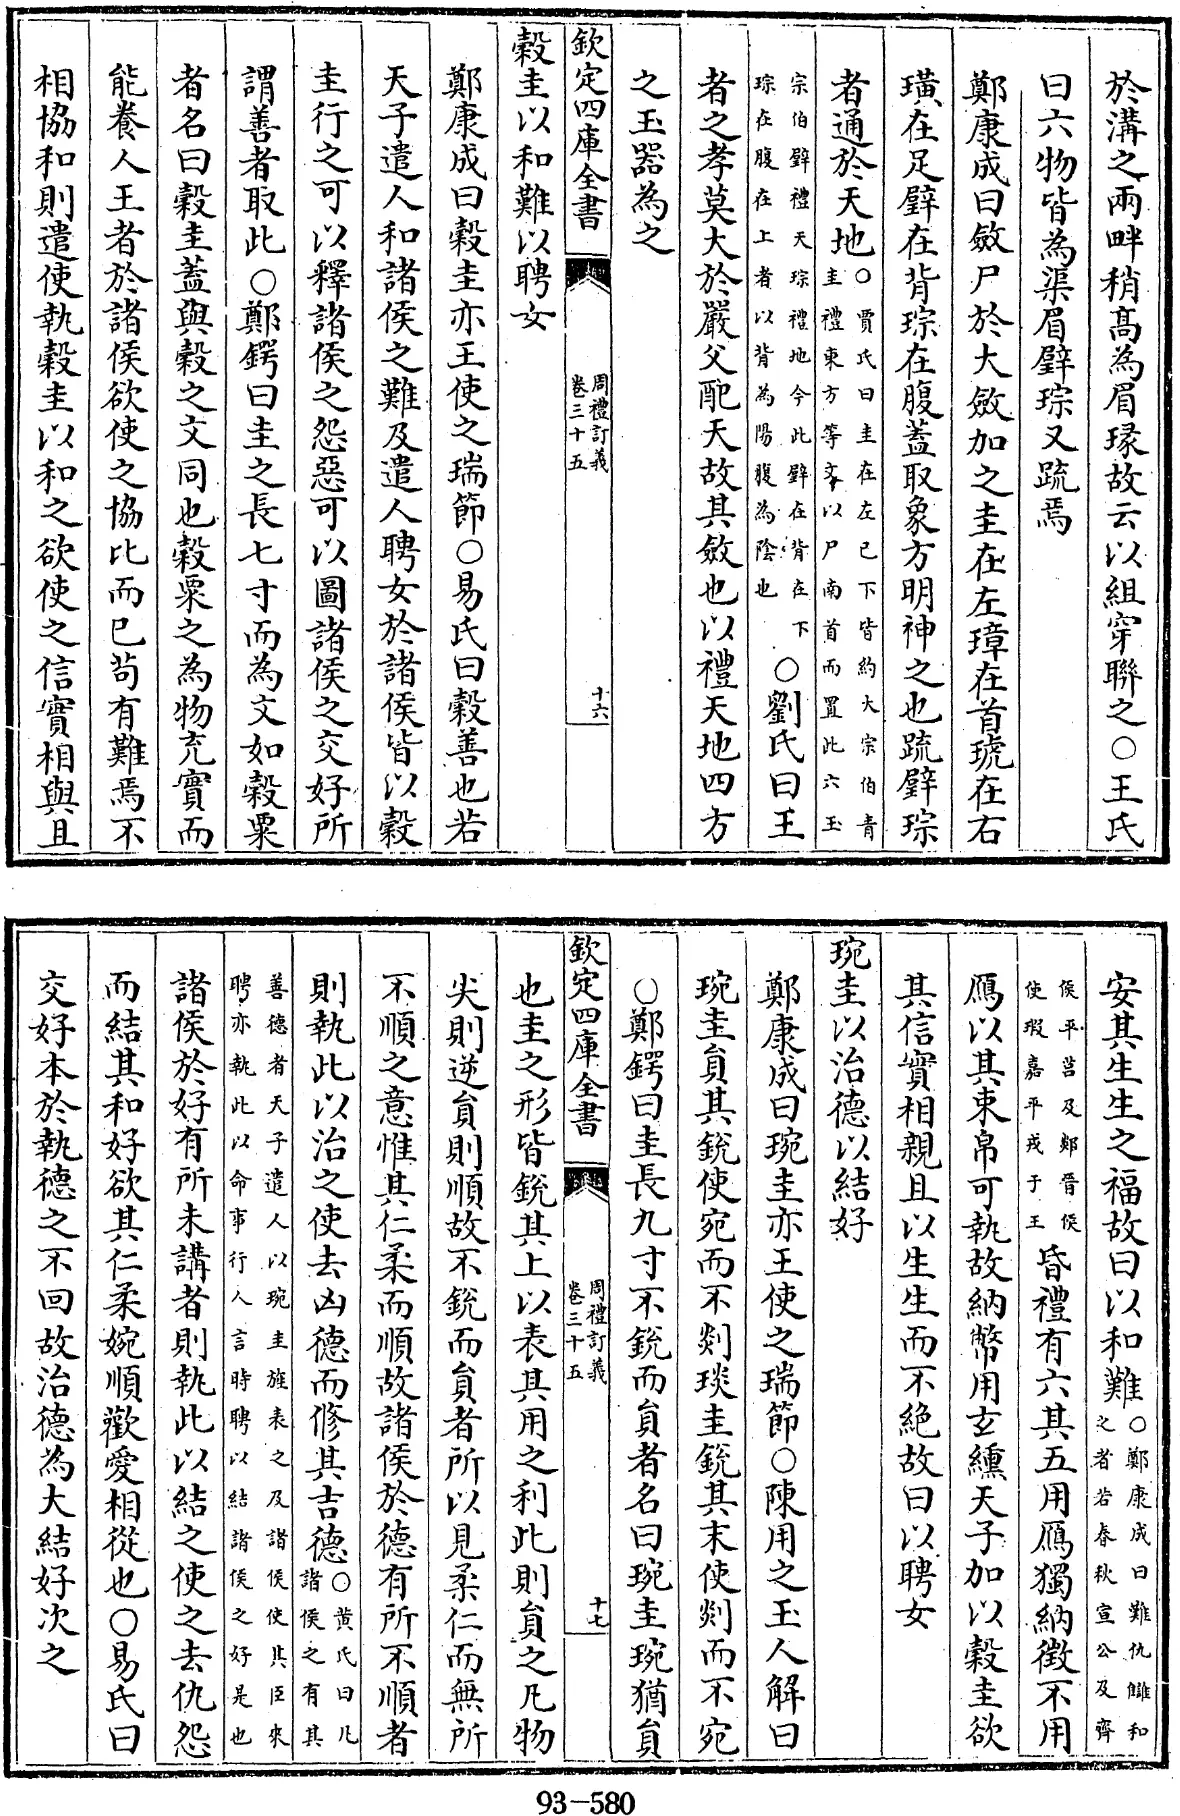 於溝之兩畔稍高為眉瑑故云以組穿聯之○王氏
曰六物皆為渠眉璧琮又疏焉
鄭康成曰斂尸於大斂加之圭在左璋在首琥在右
璜在足璧在背琮在腹蓋取象方明神之也疏璧琮
者通於天地○賈氏曰圭在左已下皆約大宗伯青
圭禮東方等文以尸南首而置此六玉
宗伯璧禮天琮禮地今此璧在背在下
琮在腹在上者以背為陽腹為陰也
○劉氏曰王
者之孝莫大於嚴父配天故其斂也以禮天地四方
之玉器為之
欽定四庫全書
周禮訂義
卷三十五
十六
穀圭以和難以聘女
鄭康成曰穀圭亦王使之瑞節○易氏曰穀善也若
天子遣人和諸侯之難及遣人聘女於諸侯皆以穀
圭行之可以釋諸侯之怨惡可以圖諸侯之交好所
謂善者取此○鄭鍔曰圭之長七寸而為文如穀粟
者名曰穀圭蓋與穀之文同也穀粟之為物充實而
能養人王者於諸侯欲使之協比而已茍有難焉不
相協和則遣使執穀圭以和之欲使之信實相與且
安其生生之福故曰以和難○鄭康成曰難仇讎和
之者若春秋宣公及齊
侯平莒及郯晉侯
使瑕嘉平戎于王
昏禮有六其五用鴈獨納徵不用
鴈以其束帛可執故納幣用玄纁天子加以穀圭欲
其信實相親且以生生而不絶故曰以聘女
琬圭以治德以結好
鄭康成曰琬圭亦王使之瑞節○陳用之玉人解曰
琬圭員其銳使宛而不剡琰圭銳其末使剡而不宛
○鄭鍔曰圭長九寸不銳而員者名曰琬圭琬猶員
欽定四庫全書
周禮訂義
卷三十五
十七
也圭之形皆銳其上以表其用之利此則員之凡物
尖則逆員則順故不銳而員者所以見柔仁而無所
不順之意惟其仁柔而順故諸侯於德有所不順者
則執此以治之使去凶德而脩其吉德○黃氏曰凡
諸侯之有其
善德者天子遣人以琬圭旌表之及諸侯使其臣來
聘亦執此以命事行人言時聘以結諸侯之好是也
諸侯於好有所未講者則執此以結之使之去仇怨
而結其和好欲其仁柔婉順歡愛相從也○易氏曰
交好本於執德之不回故治德為大結好次之
93-580